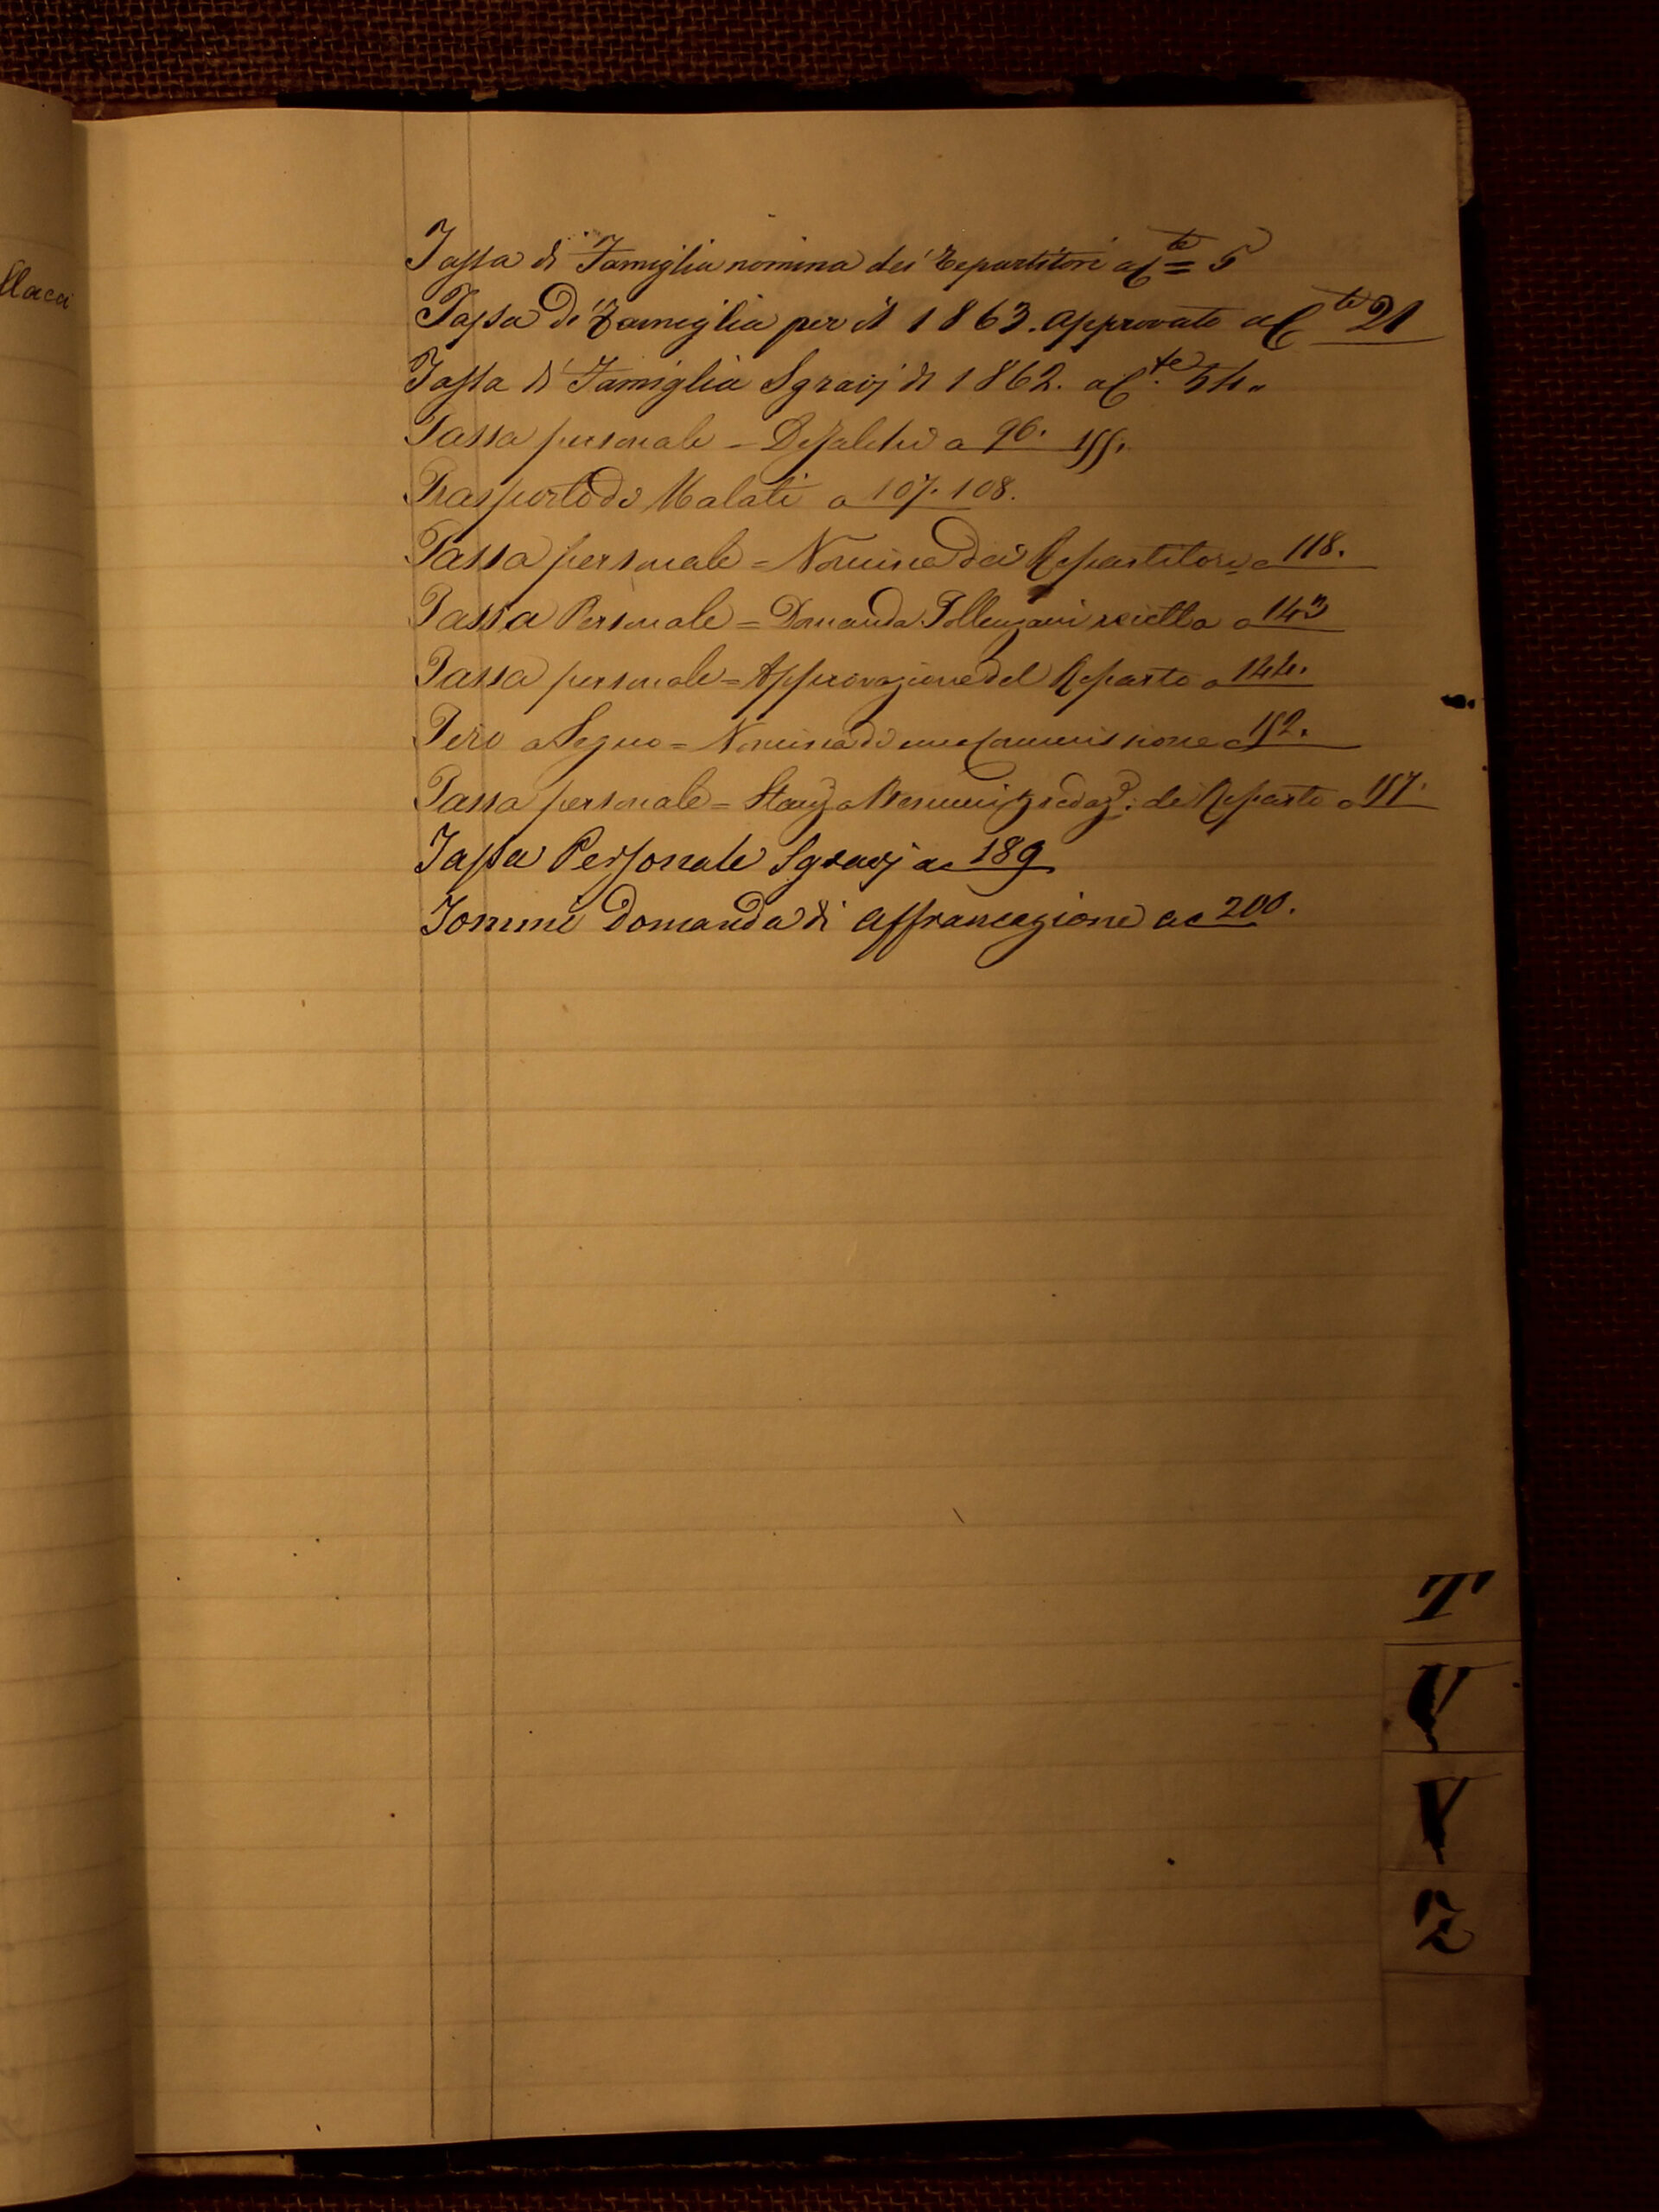 llacci
Tassa di Famiglia nomina dei Repartitori a Cte 5
Tassa di Famiglia per il 1863. approvato a Cte 21
Tassa di Famiglia Sgravj di 1862. a Cte. 54.
Tassa personale = Defalchi a 96. 155.
Trasporto di Malati a 107. 108.
Tassa personale = Nomina dei Repartitori a 118.
Tassa Personale = Domanda reietta a 143
Tassa personale = Approvazione del Reparto a 144.
Tiro a Segno = Nomina di una Commissione a 152.
Tassa personale = di Reparto a 157.
Tassa Personale Sgravj a 189
Tommi Domanda di affrancazione ac 200.
T
V
Z